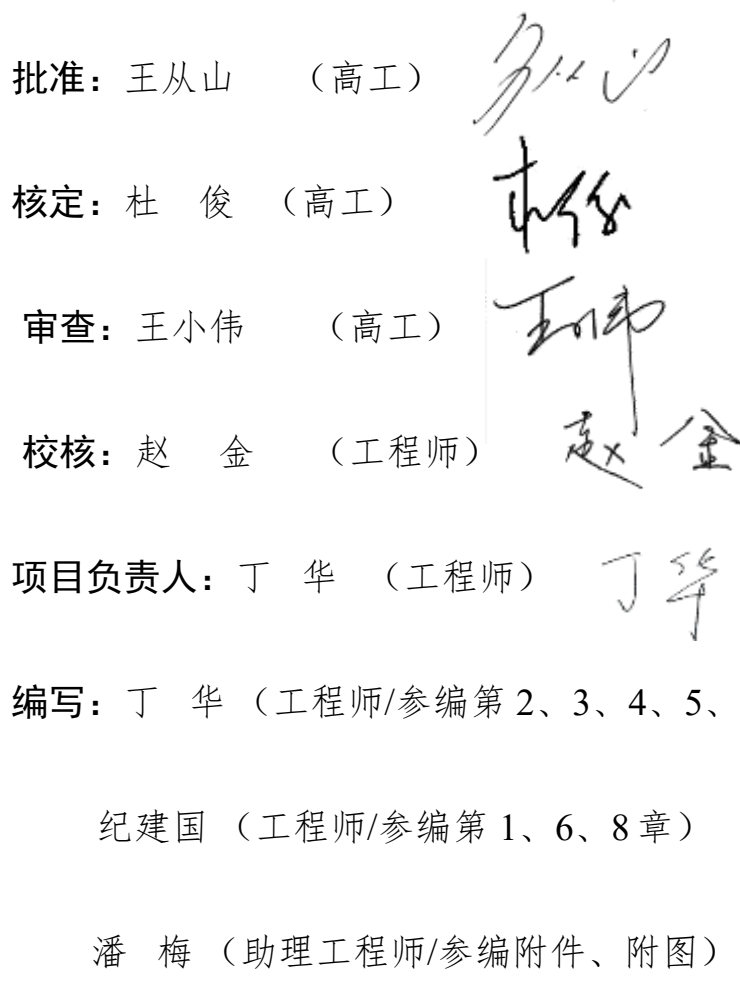 批准：王从山 （高工）
核定：杜 俊 （高工）
审查：王小伟 （高工）
校核：赵 金 （工程师） 赵 金
项目负责人：丁 华 （工程师） 丁华
编写：丁 华 （工程师/参编第 2、3、4、5、
纪建国 （工程师/参编第 1、6、8 章）
潘 梅 （助理工程师/参编附件、附图）